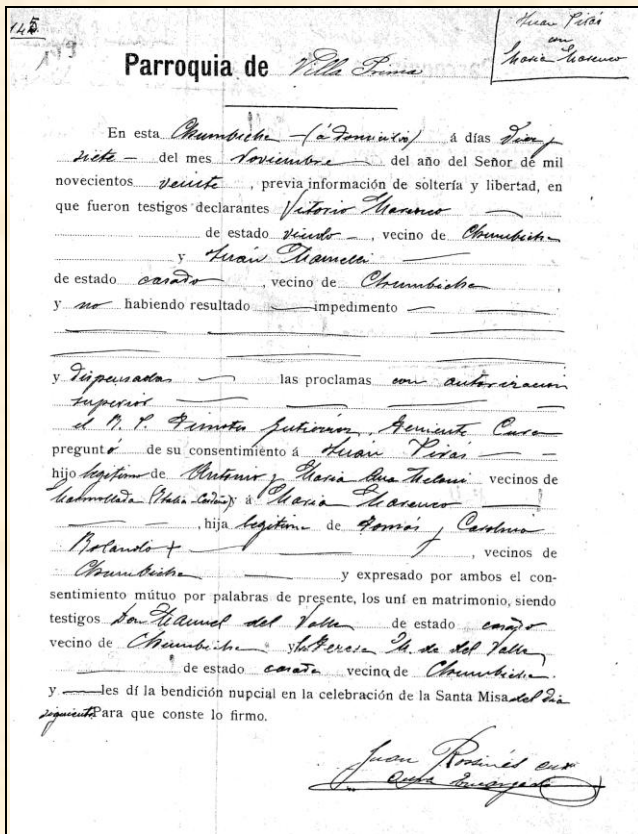 145
Juan Piras
con
Maria Marenco
Parroquia de Villa Prima
En esta Chumbicha - (á domicilio) á días Diez y
siete - del mes Noviembre del año del Señor de mil
novecientos veinte, previa información de soltería y libertad, en
que fueron testigos declarantes Vitorio Marenco
de estado viudo -, vecino de Chumbicha
y Juán
de estado casado, vecino de Chumbicha
y no habiendo resultado impedimento
y dispensadas las proclamas con autorizacion
superior
el R. P. Timoteo Gutierrez, Teniente Cura
preguntó de su consentimiento á Juán Piras
hijo legitimo de Antonio y Maria Ana Meloni vecinos de
(Italia-Cerdeña) y á Maria Marenco
, hija legitima de Tomás y Carolina
Rolando +, vecinos de
Chumbicha y expresado por ambos el con-
sentimiento mútuo por palabras de presente, los uní en matrimonio, siendo
testigos Don Manuel del Valle de estado casado
vecino de Chumbicha y Da Teresa M. de del Valle
de estado casada vecina de Chumbicha
y les dí la bendición nupcial en la celebración de la Santa Misa del dia
siguiente. Para que conste lo firmo.
Juan Rosinés
Cura Encargado